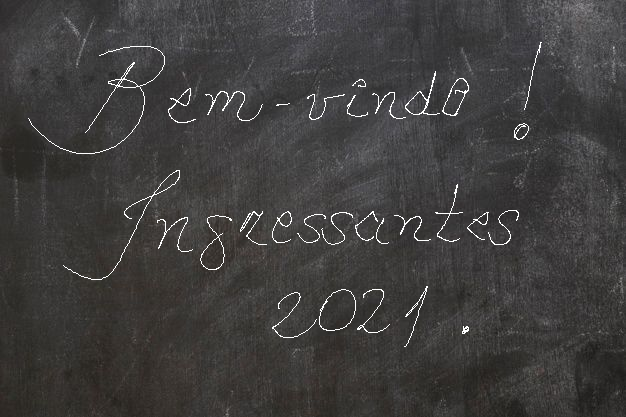 Bem-vindo!
Ingressantes
2021.